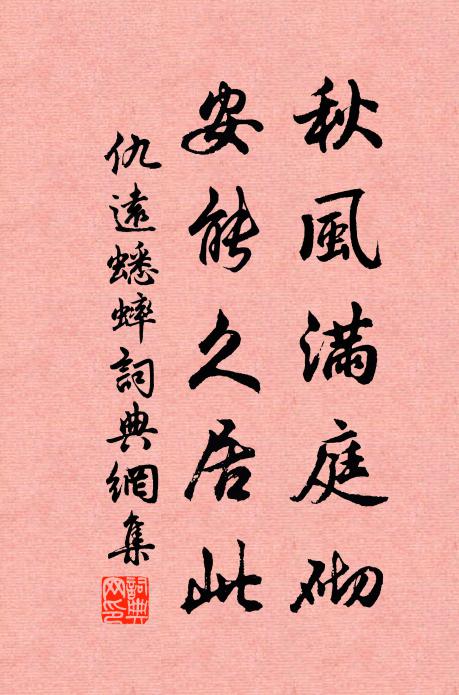 秋風滿庭砌
安能久居此
仇遠蟋蟀詞典網集
詞典網印